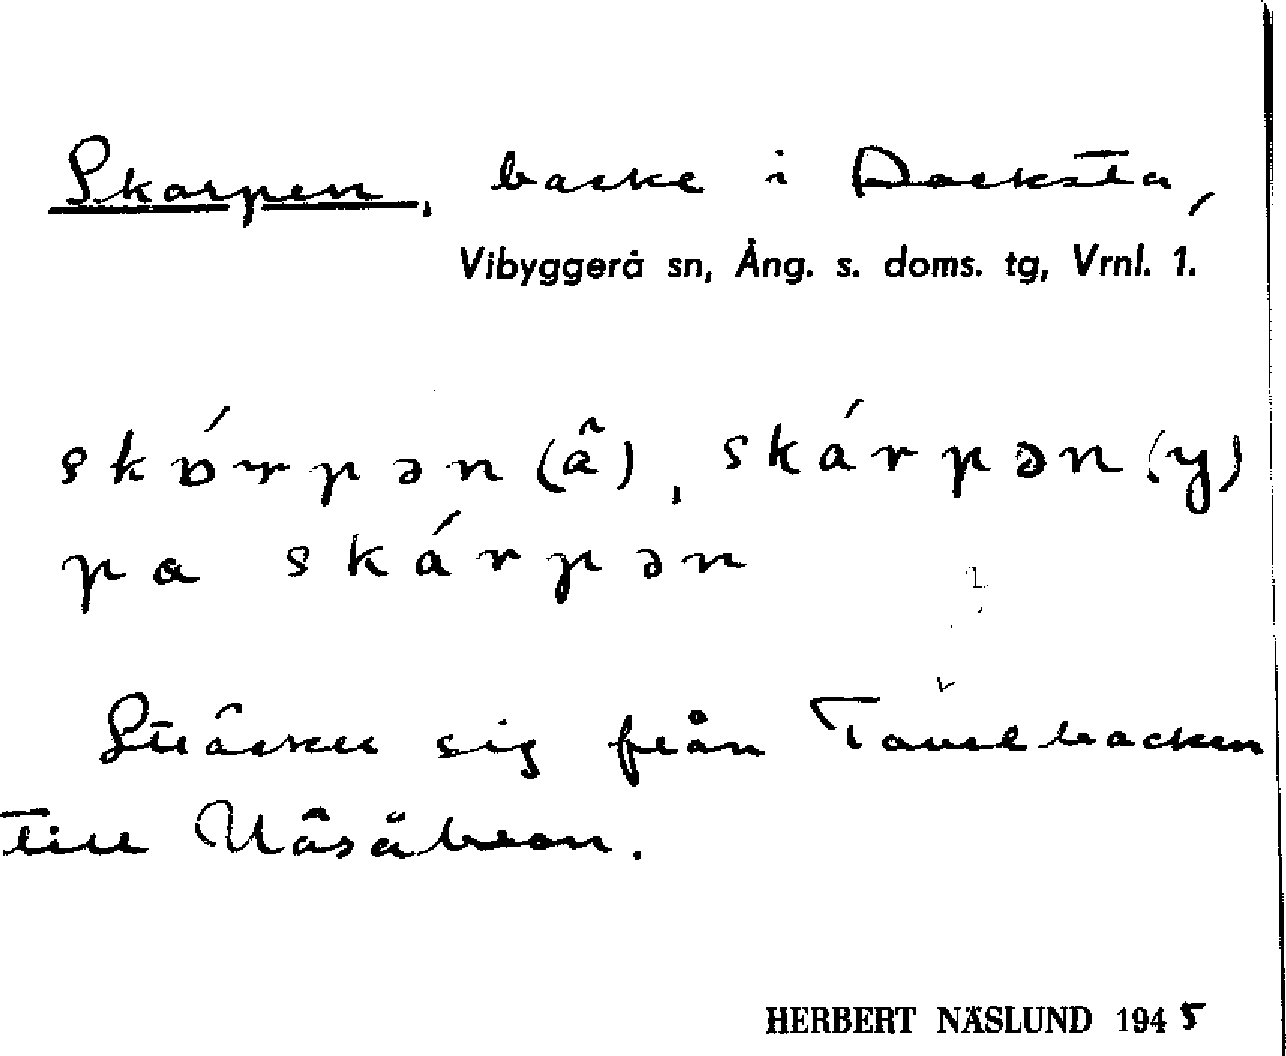 Skarpen, backe i Docksta,
Vibyggerå sn, Ång. s. doms. tg, Vrnl. 1.
skɒ́rpən (ä), skárpən (y)
pa skárpən
Sträcker sig från Tavelbacken
till
HERBERT NÄSLUND 1945